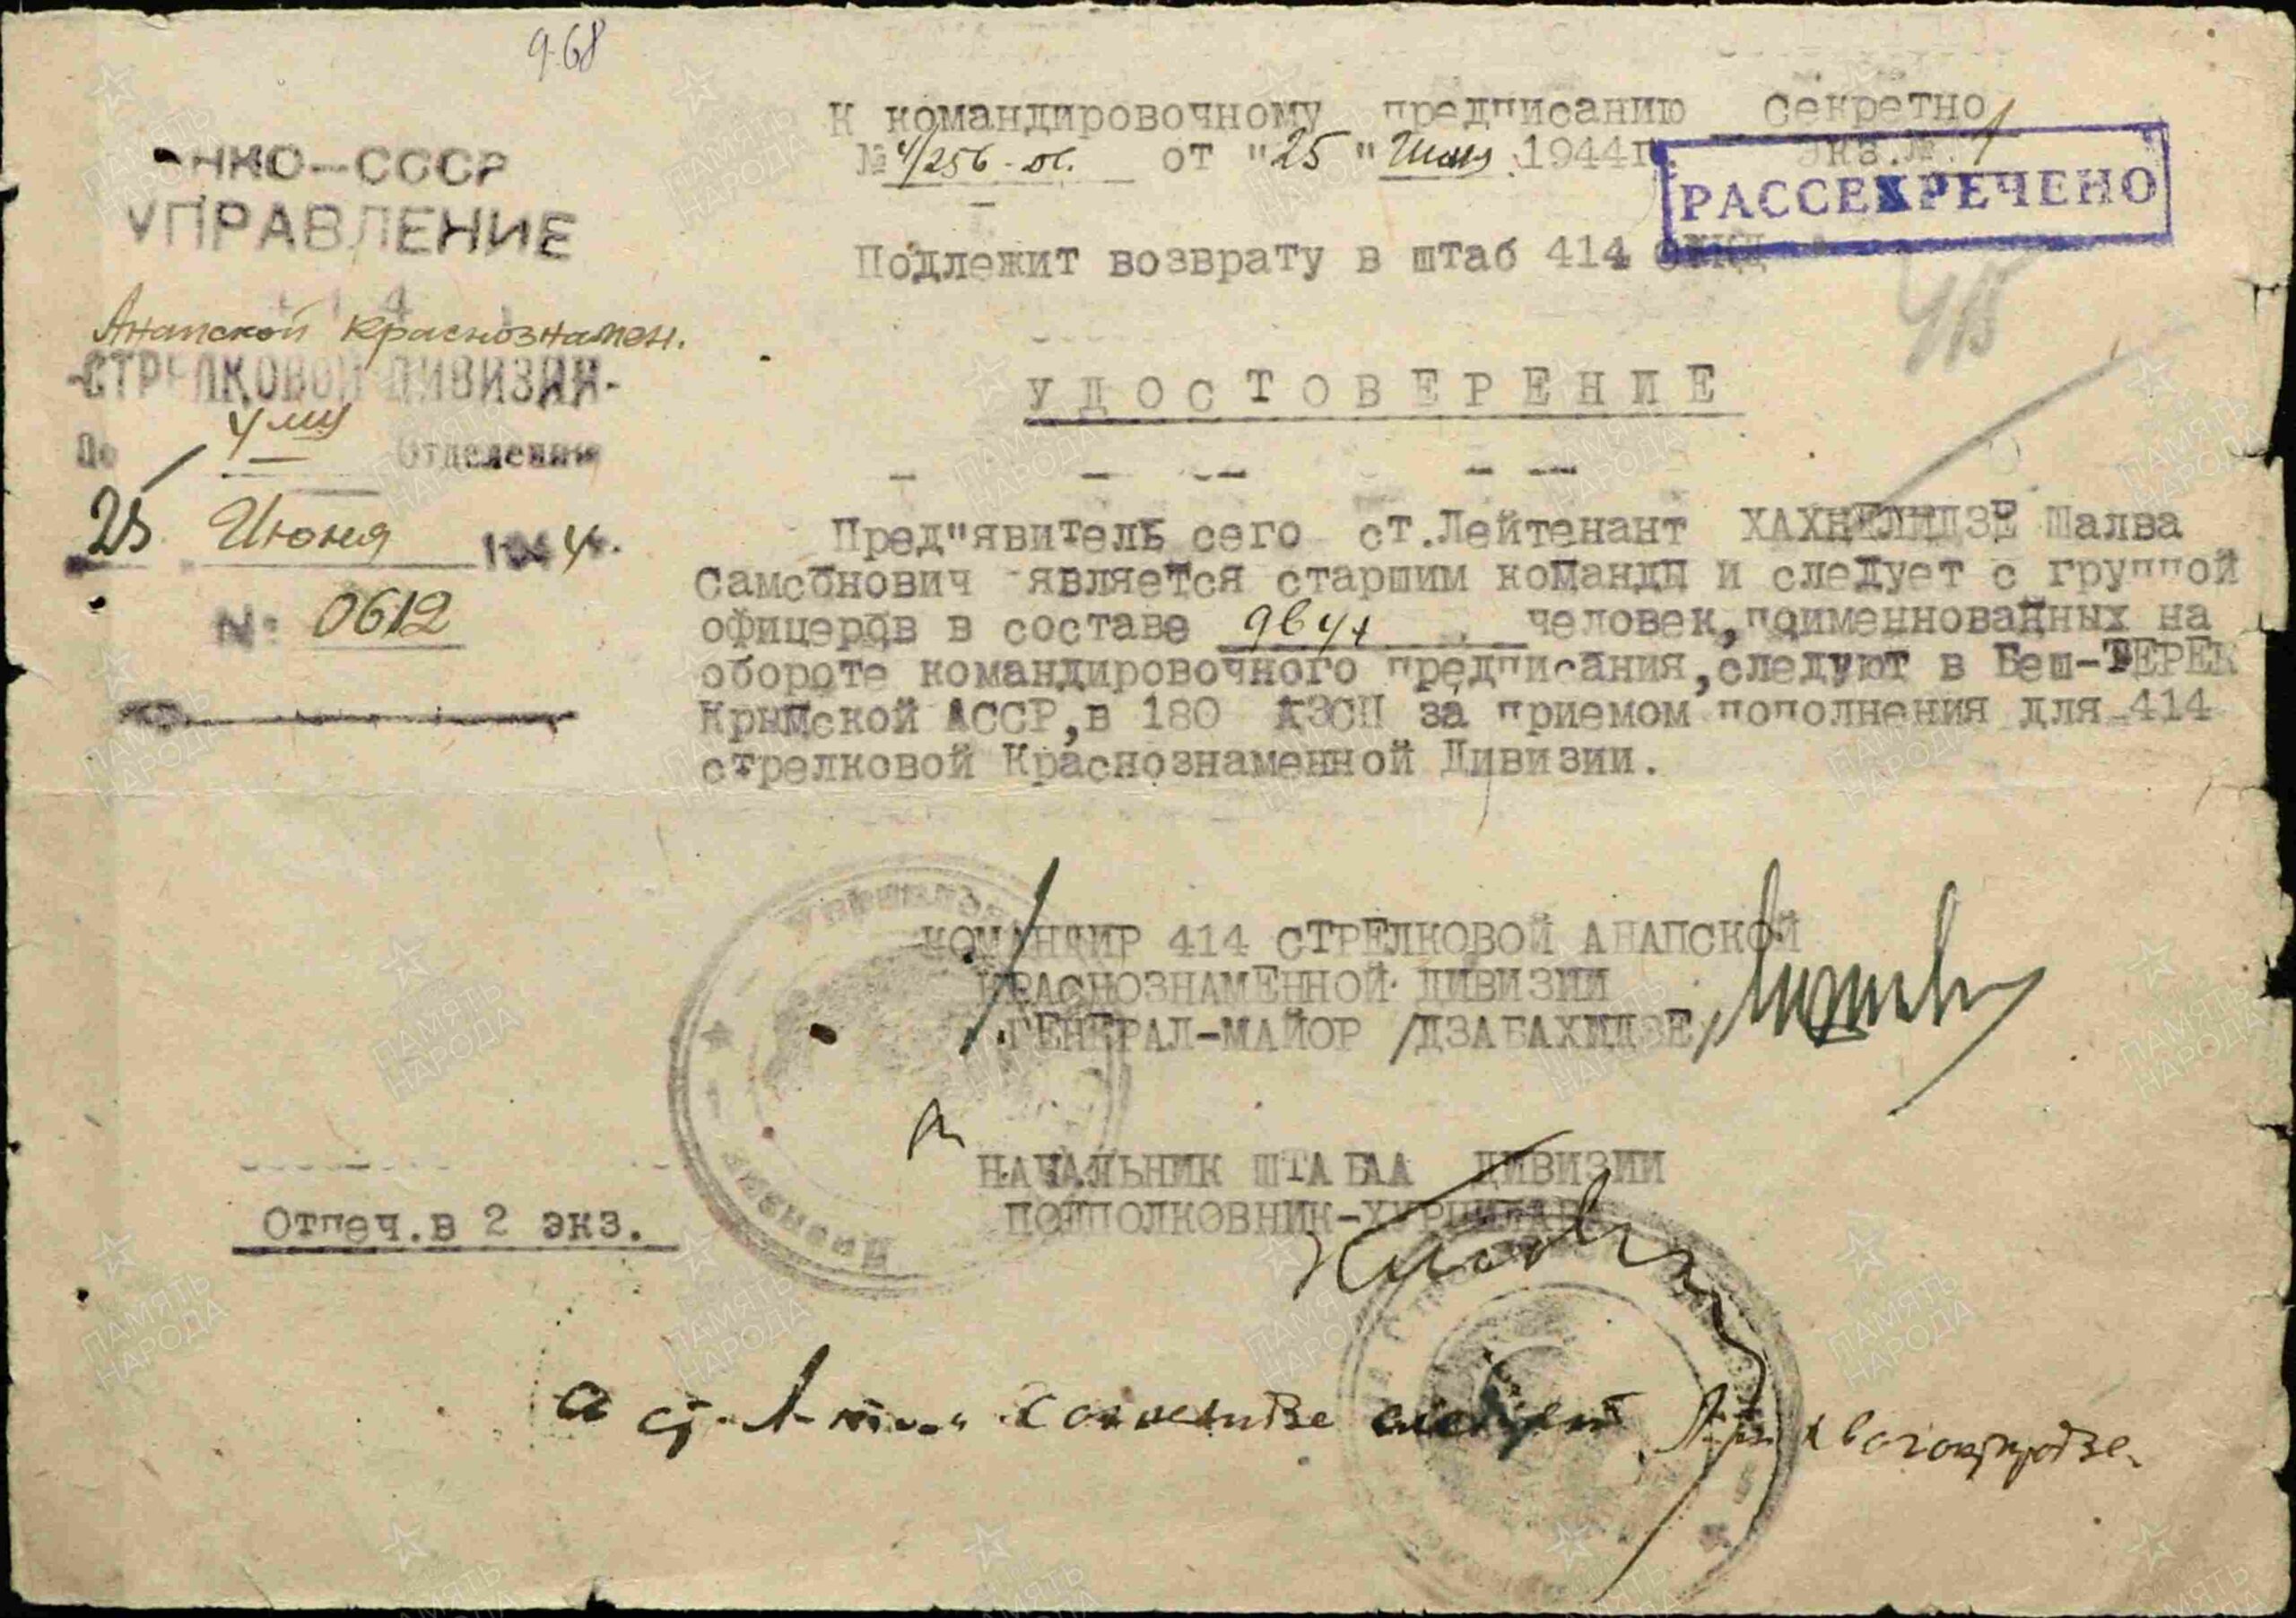 9-68
НКО-СССР
УПРАВЛЕНИЕ
414
Анапской Краснознамен.
-СТРЕЛКОВОЙ ДИВИЗИИ-
По 4му Отделению
25 Июня 1944.
№ 0612
К командировочному предписанию Секретно
№ 4/256-ос. от "25" Июня 1944г. Экз.№ 1
РАССЕКРЕЧЕНО
Подлежит возврату в штаб 414
УДОСТОВЕРЕНИЕ
Пред"явитель сего ст.Лейтенант ХАХНЕЛИДЗЕ Шалва
Самсонович является старшим команды и следует с группой
офицеров в составе двух человек,поименнованных на
обороте командировочного предписания,следуют в Беш-ТЕРЕК
Крымской АССР,в 180 АЗСП за приемом пополнения для 414
стрелковой Краснознаменной Дивизии.
КОМАНДИР 414 СТРЕЛКОВОЙ АНАПСКОЙ
КРАСНОЗНАМЕННОЙ ДИВИЗИИ
ГЕНЕРАЛ-МАЙОР /ДЗАБАХИДЗЕ/
НАЧАЛЬНИК ШТАБАА ДИВИЗИИ
ПОДПОЛКОВНИК-ХУРЦИЛАВА
Отпеч.в 2 экз.
следует
ПАМЯТЬ НАРОДА